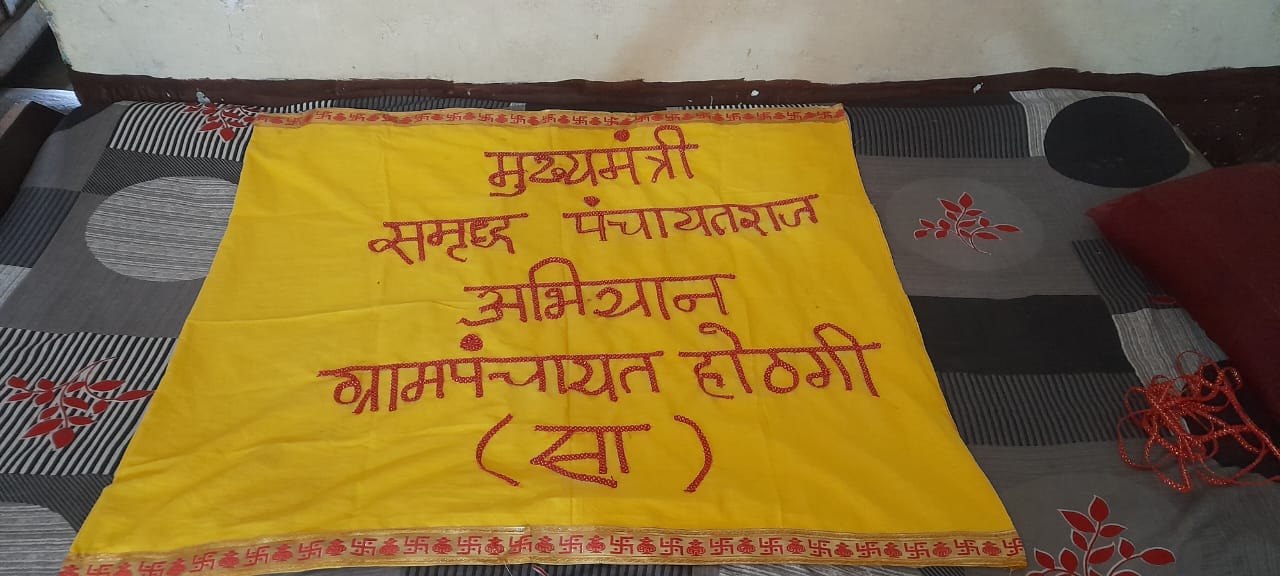 मुख्यमंत्री
समृध्द पंचायतराज
अभियान
ग्रामपंचायत होठगी
( सा )